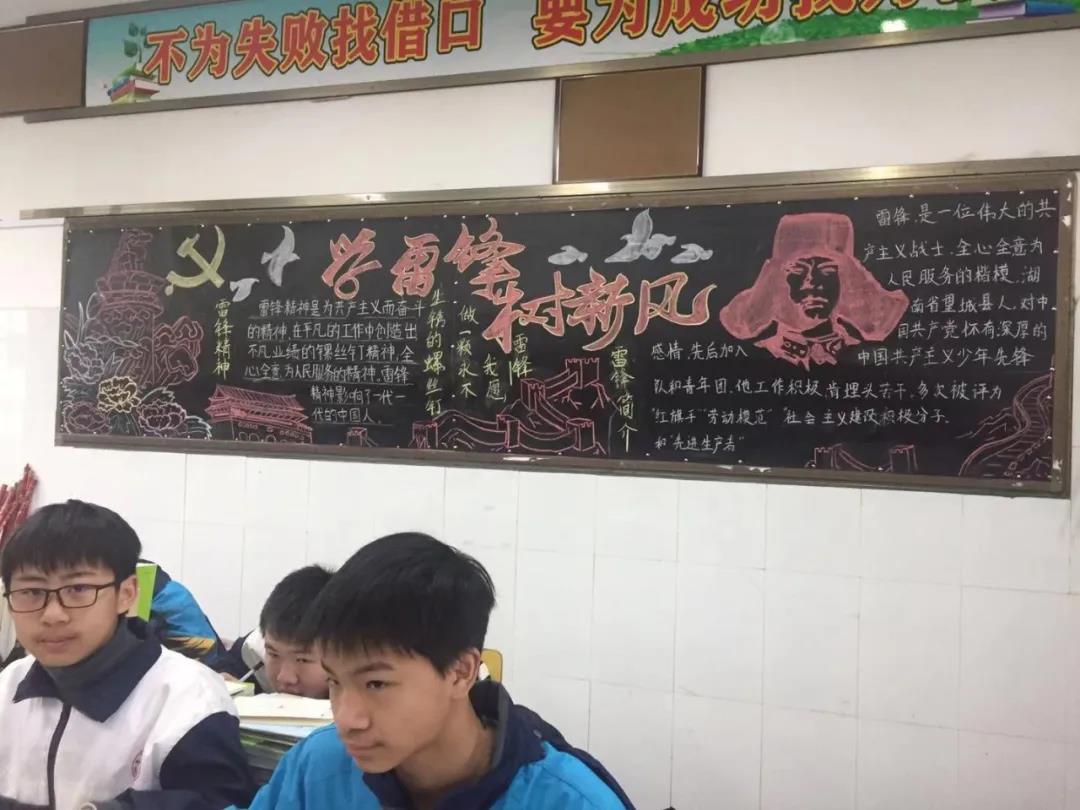 不为失败找借口 要为成功找方
学雷锋
树新风
雷锋精神
雷锋精神是为共产主义而奋斗
的精神,在平凡的工作中创造出
不凡业绩的“螺丝钉”精神,全
心全意为人民服务的精神,雷锋
精神影响了一代一
代的中国人.
做一颗永不
生锈的螺丝钉
我愿
雷锋
雷锋简介
雷锋是一位伟大的共
产主义战士,全心全意为
人民服务的楷模,湖
南省望城县人,对中
国共产党怀有深厚的
感情,先后加入 中国共产主义少年先锋
队和青年团,他工作积极,肯埋头苦干,多次被评为
“红旗手”“劳动模范”“社会主义建设积极分子.
和“先进生产者”